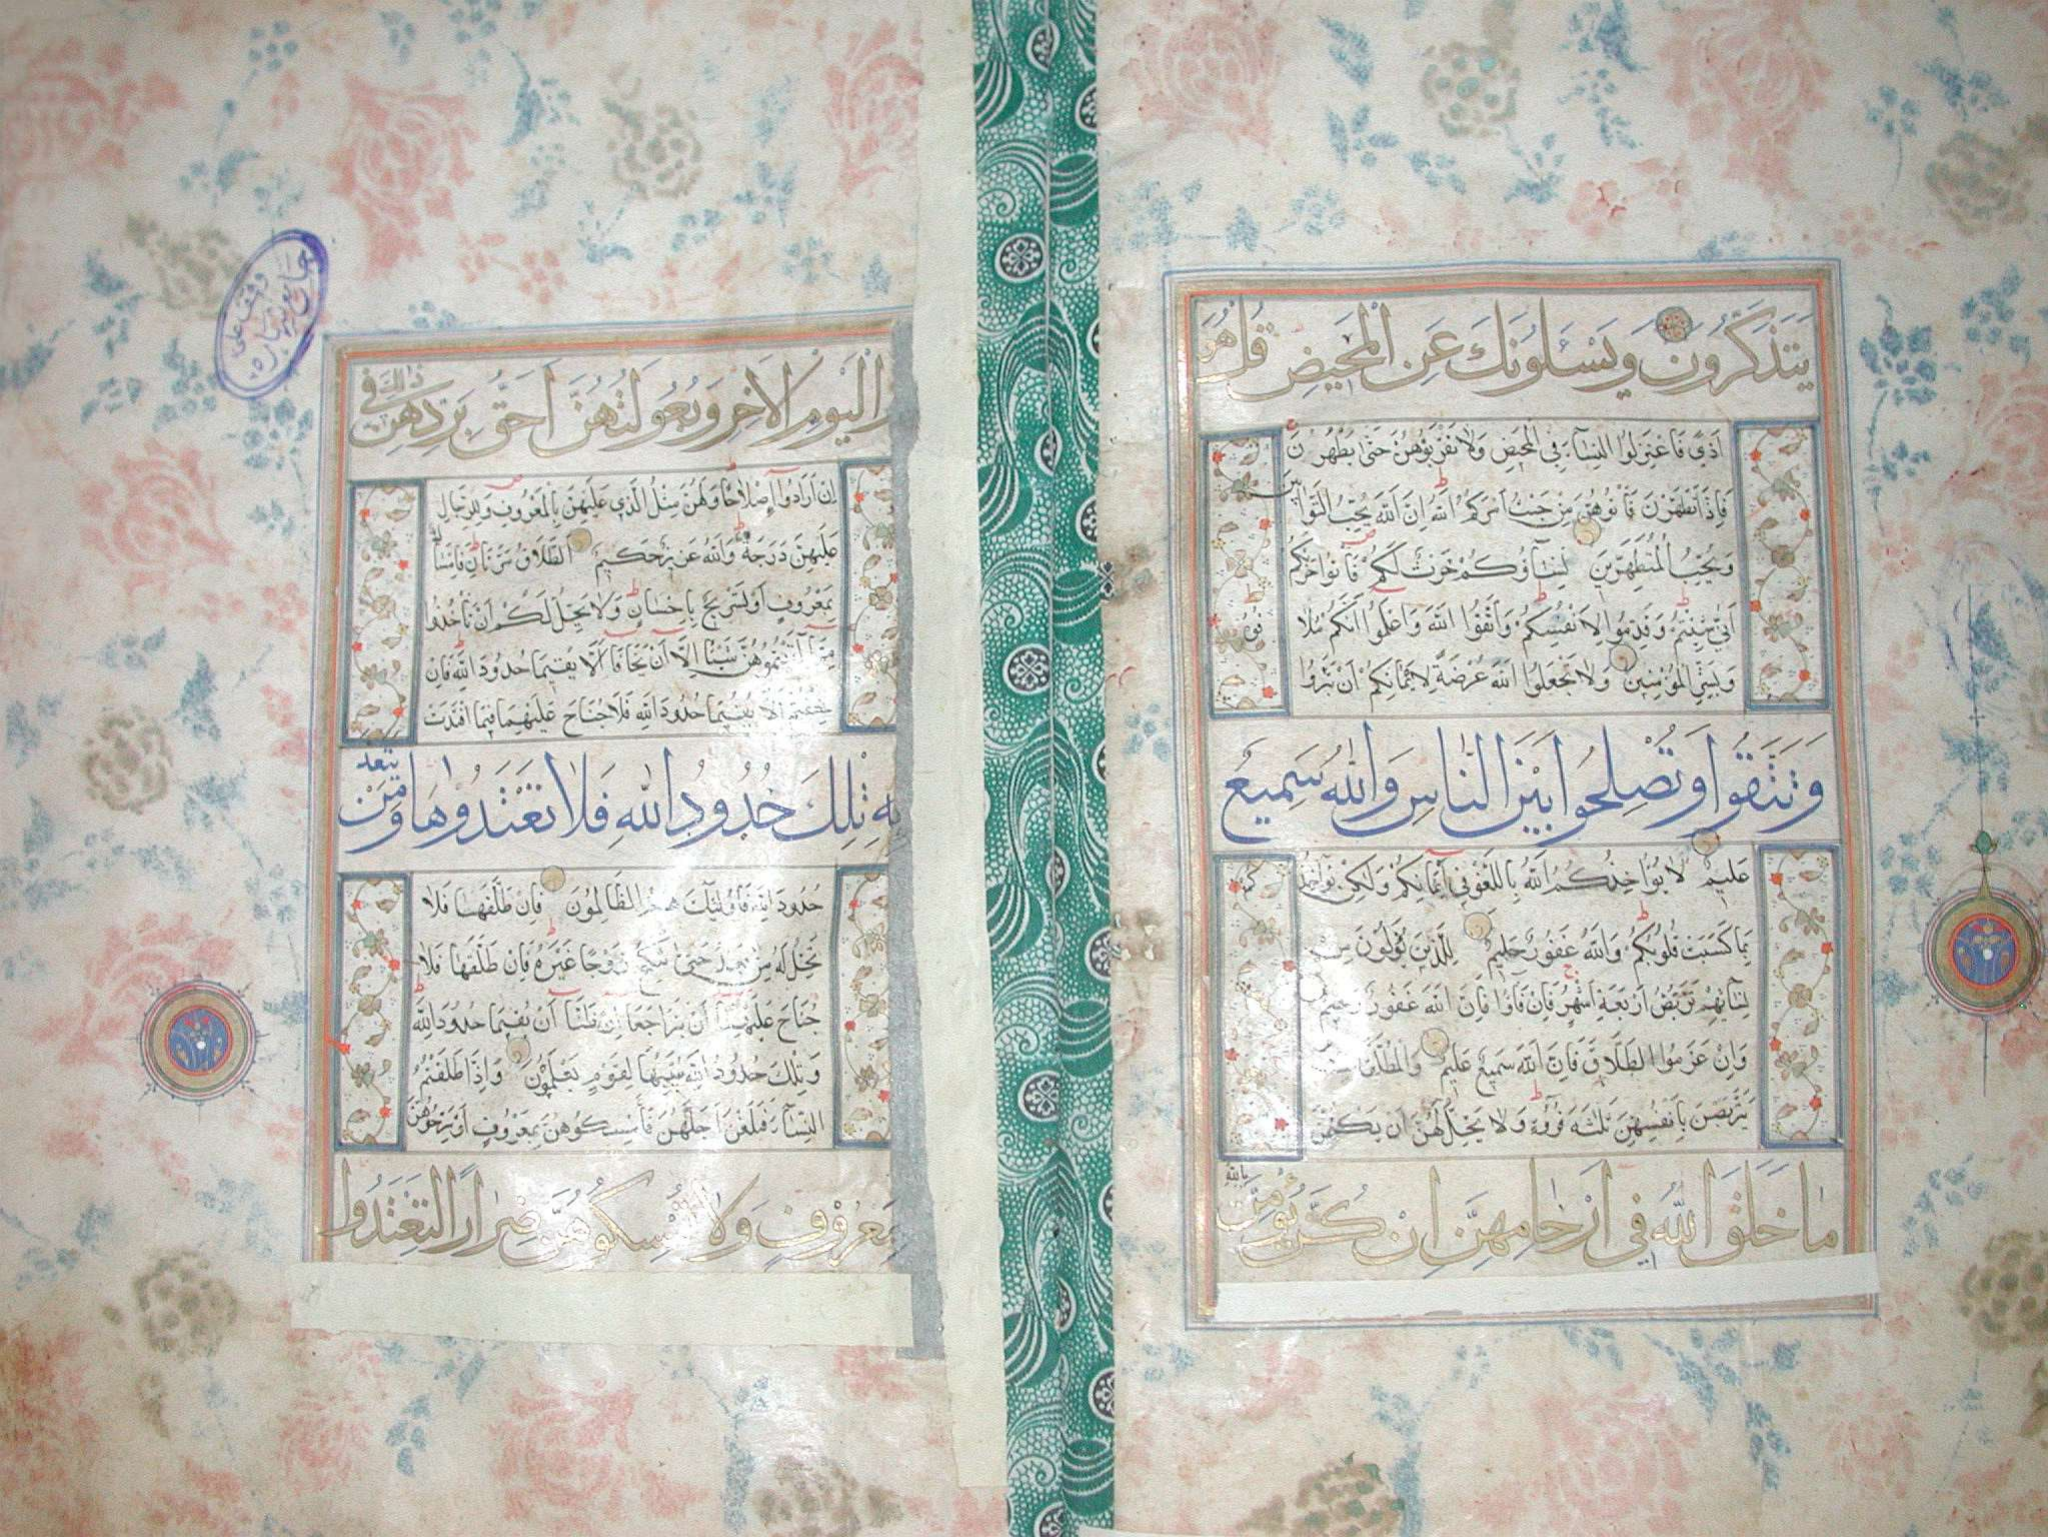 يَتَذَكَّرُونَ وَيَسْـَٔلُونَكَ عَنِ الْمَحِيضِ قُلْ هُوَ
اَذًى فَاعْتَزِلُوا النِّسَآءَ فِي الْمَحِيضِ وَلَا تَقْرَبُوهُنَّ حَتَّى يَطْهُرْنَ
فَاِذَا تَطَهَّرْنَ فَأْتُوهُنَّ مِنْ حَيْثُ اَمَرَكُمُ اللهُ اِنَّ اللهَ يُحِبُّ التَّوَّابِينَ
وَيُحِبُّ الْمُتَطَهِّرِينَ نِسَآؤُكُمْ حَرْثٌ لَكُمْ فَأْتُوا حَرْثَكُمْ
اَنّٰى شِئْتُمْ وَقَدِّمُوا لِاَنْفُسِكُمْ وَاتَّقُوا اللهَ وَاعْلَمُوا اَنَّكُمْ مُلَاقُوهُ
وَبَشِّرِ الْمُؤْمِنِينَ وَلَا تَجْعَلُوا اللهَ عُرْضَةً لِاَيْمَانِكُمْ اَنْ تَبَرُّوا
وَتَتَّقُوا وَتُصْلِحُوا بَيْنَ النَّاسِ وَاللهُ سَمِيعٌ
عَلِيمٌ لَا يُؤَاخِذُكُمُ اللهُ بِاللَّغْوِ فِي اَيْمَانِكُمْ وَلَكِنْ يُؤَاخِذُكُمْ
بِمَا كَسَبَتْ قُلُوبُكُمْ وَاللهُ غَفُورٌ حَلِيمٌ لِلَّذِينَ يُؤْلُونَ مِنْ
نِسَآئِهِمْ تَرَبُّصُ اَرْبَعَةِ اَشْهُرٍ فَاِنْ فَآؤُا فَاِنَّ اللهَ غَفُورٌ رَحِيمٌ
وَاِنْ عَزَمُوا الطَّلَاقَ فَاِنَّ اللهَ سَمِيعٌ عَلِيمٌ وَالْمُطَلَّقَاتُ
يَتَرَبَّصْنَ بِاَنْفُسِهِنَّ ثَلٰثَةَ قُرُوءٍ وَلَا يَحِلُّ لَهُنَّ اَنْ يَكْتُمْنَ
مَا خَلَقَ اللهُ فِي اَرْحَامِهِنَّ اِنْ كُنَّ يُؤْمِنَّ بِاللهِ
وَالْيَوْمِ الْاٰخِرِ وَبُعُولَتُهُنَّ اَحَقُّ بِرَدِّهِنَّ فِي ذٰلِكَ
اِنْ اَرَادُوا اِصْلَاحًا وَلَهُنَّ مِثْلُ الَّذِي عَلَيْهِنَّ بِالْمَعْرُوفِ وَلِلرِّجَالِ
عَلَيْهِنَّ دَرَجَةٌ وَاللهُ عَزِيزٌ حَكِيمٌ الطَّلَاقُ مَرَّتَانِ فَاِمْسَاكٌ
بِمَعْرُوفٍ اَوْ تَسْرِيحٌ بِاِحْسَانٍ وَلَا يَحِلُّ لَكُمْ اَنْ تَأْخُذُوا
مِمَّا اٰتَيْتُمُوهُنَّ شَيْئًا اِلَّا اَنْ يَخَافَا اَلَّا يُقِيمَا حُدُودَ اللهِ فَاِنْ
خِفْتُمْ اَلَّا يُقِيمَا حُدُودَ اللهِ فَلَا جُنَاحَ عَلَيْهِمَا فِيمَا افْتَدَتْ
بِهِ تِلْكَ حُدُودُ اللهِ فَلَا تَعْتَدُوهَا وَمَنْ يَتَعَدَّ
حُدُودَ اللهِ فَاُولٰئِكَ هُمُ الظَّالِمُونَ فَاِنْ طَلَّقَهَا فَلَا
تَحِلُّ لَهُ مِنْ بَعْدُ حَتَّى تَنْكِحَ زَوْجًا غَيْرَهُ فَاِنْ طَلَّقَهَا فَلَا
جُنَاحَ عَلَيْهِمَا اَنْ يَتَرَاجَعَا اِنْ ظَنَّا اَنْ يُقِيمَا حُدُودَ اللهِ
وَتِلْكَ حُدُودُ اللهِ يُبَيِّنُهَا لِقَوْمٍ يَعْلَمُونَ وَاِذَا طَلَّقْتُمُ
النِّسَآءَ فَبَلَغْنَ اَجَلَهُنَّ فَأَمْسِكُوهُنَّ بِمَعْرُوفٍ اَوْ سَرِّحُوهُنَّ
بِمَعْرُوفٍ وَلَا تُمْسِكُوهُنَّ ضِرَارًا لِتَعْتَدُوا
وقف علی